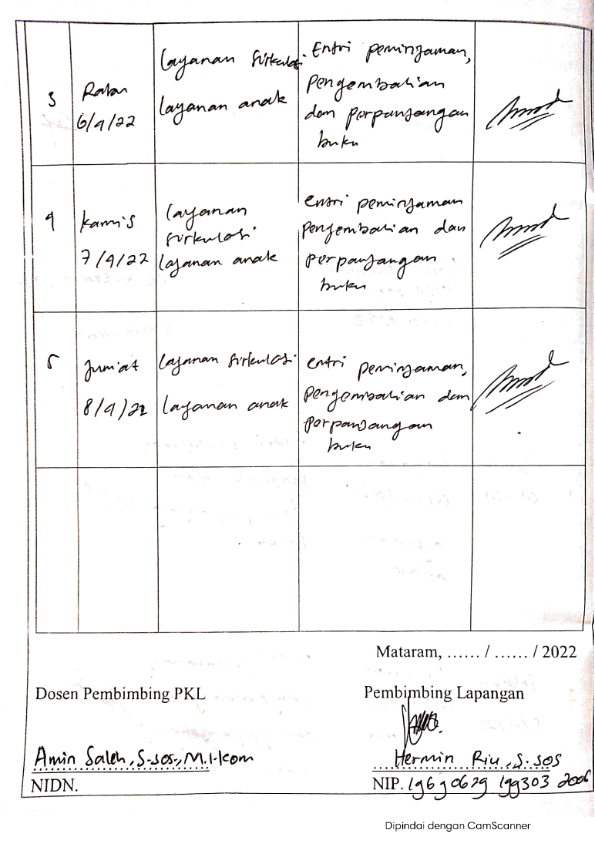 3
Rabu
6/4/22
Layanan sirkulasi
layanan anak
Entri peminjaman,
pengembalian
dan perpanjangan
buku
4
Kamis
7/4/22
layanan
sirkulasi
layanan anak
entri peminjaman
pengembalian dan
perpanjangan
buku
5
Jum'at
8/4/22
layanan sirkulasi
layanan anak
entri peminjaman,
pengembalian dan
perpanjangan
buku
Mataram, ...... / ...... / 2022
Dosen Pembimbing PKL
Pembimbing Lapangan
Amin Saleh, S.sos., M.I.kom
Hermin Riu, S.sos
NIDN.
NIP. 19690629 199303 2006
Dipindai dengan CamScanner